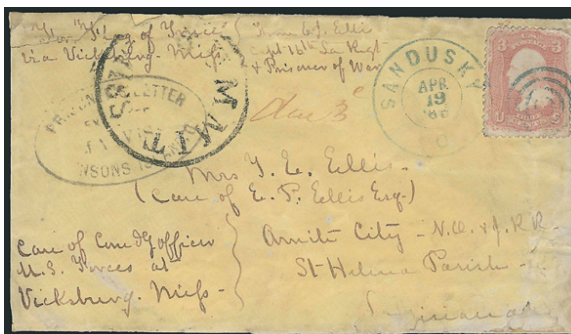 For Flag of Truce
via Vicksburg. Miss
From E. J. Ellis
Capt 16th La Regt
& Prisoner of War
Due 3c
SANDUSKY
APR
19
O
3 3
U S
PRISONER'S LETTER
Mrs T. E. Ellis.
(Care of E. P. Ellis Esq.)
Amite City - N.O. & J. R R
St Helena Parish -
Care of Comdg officer
U.S. Forces at
Vicksburg. Miss -